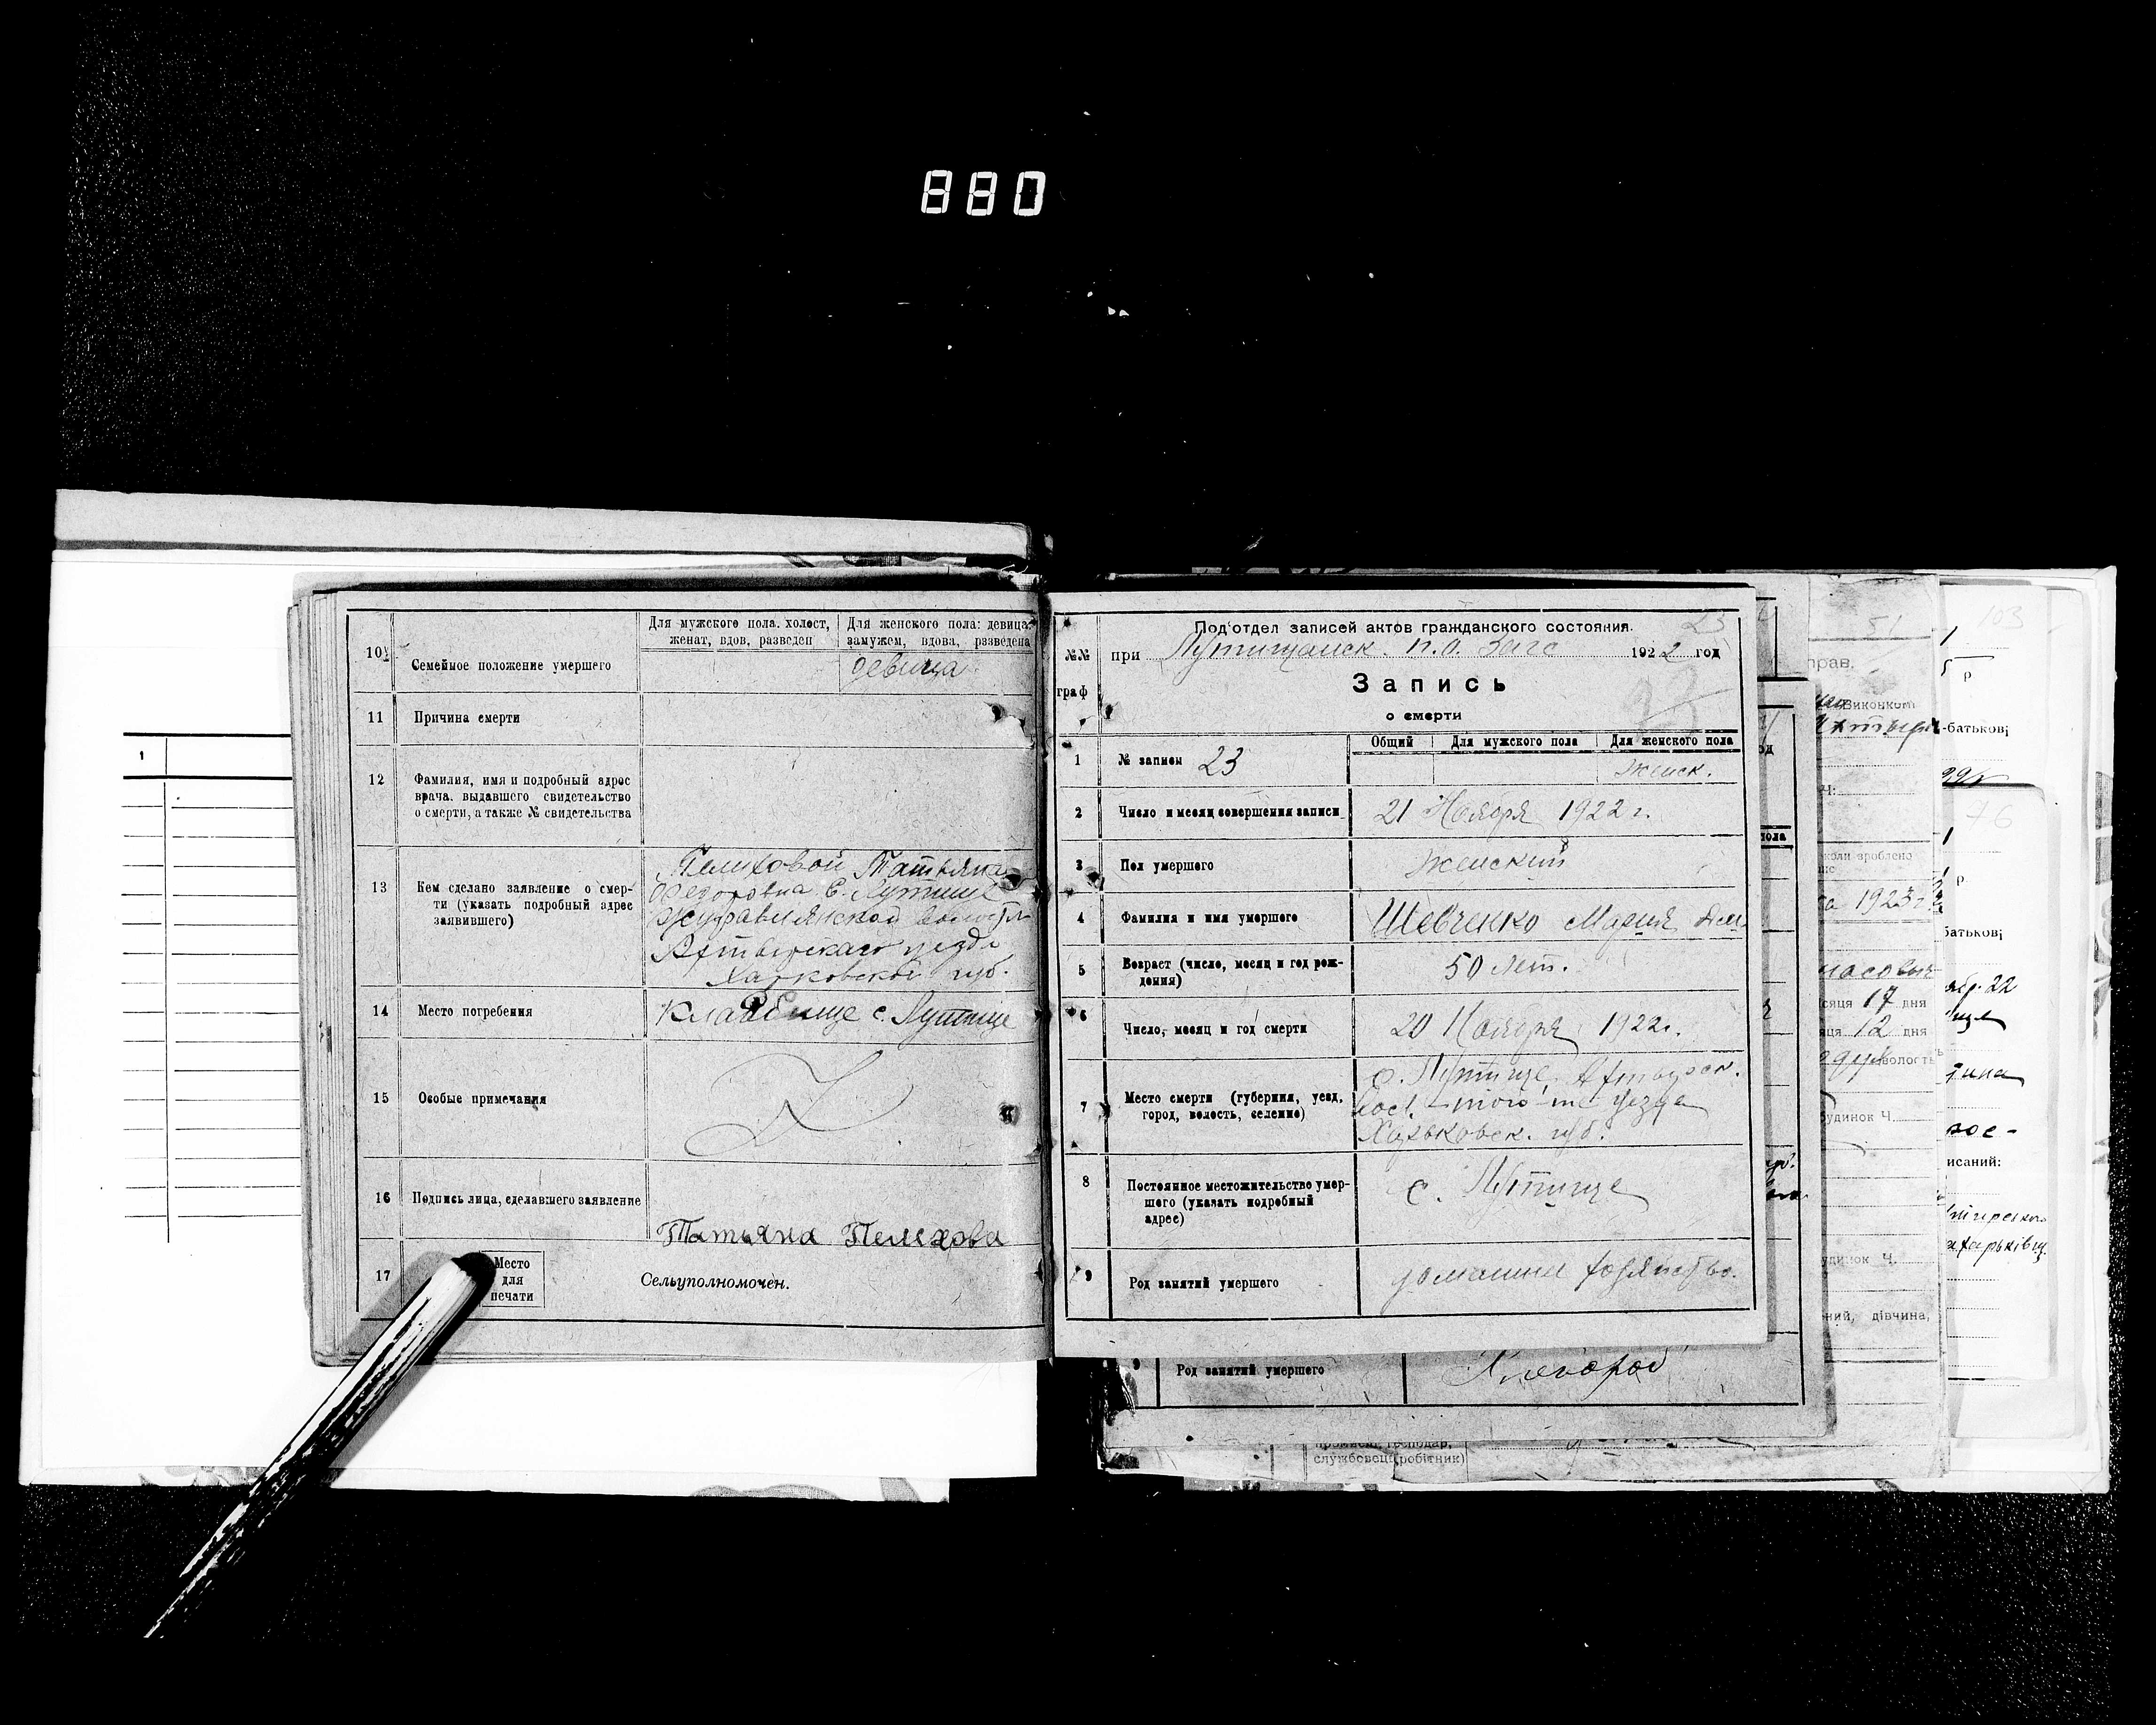 880
10
Семейное положение умершего
Для мужского пола. холост,
женат, вдов, разведен
Для женского пола: девица,
замужем, вдова, разведена
девица
11
Причина смерти
12
Фамилия, имя и подробный адрес
врача, выдавшего свидетельство
о смерти, а также № свидетельства
13
Кем сделано заявление о смер-
ти (указать подробный адрес
заявившего)
Пелиховой Татьяна
Федоровна с. Лутище
Журавлянской волости
Ахтырскаго уезда
Харковской губ.
14
Место погребения
Кладбище с. Лутище
15
Особые примечания
16
Подпись лица, сделавшего заявление
Татьяна Пелехова
17
Место
для
печати
Сельуполномочен.
23
Под'отдел записей актов гражданского состояния.
№№
граф
при Лутищанск. п.о. Загс 1922 год
Запись
о смерти
1
№ записи 23
Общий
Для мужского пола
Для женского пола
Женск.
2
Число и месяц совершения записи
21 Ноября 1922 г.
3
Пол умершего
Женский
4
Фамилия и имя умершего
Шевченко Мария
5
Возраст (число, месяц и год рож-
дения)
50 лет.
6
Число, месяц и год смерти
20 Ноября 1922г.
7
Место смерти (губерния, уезд,
город, волость, селение)
с. Лутище,
уезда
Харьковск. губ.
8
Постоянное местожительство умер-
шего (указать подробный
адрес)
с. Лутище
9
Род занятий умершего
домашнее хозяйство.
9
Род занятий умершего
Хлебороб
службовець, робітник)
1
51
прав.
Виконком
коли зроблено
1923 г.
місяця 17 дня
12 дня
волость
будинок Ч.
будинок Ч.
дівчина,
103
р
-батькові
76
р
батькові
22
исаний: